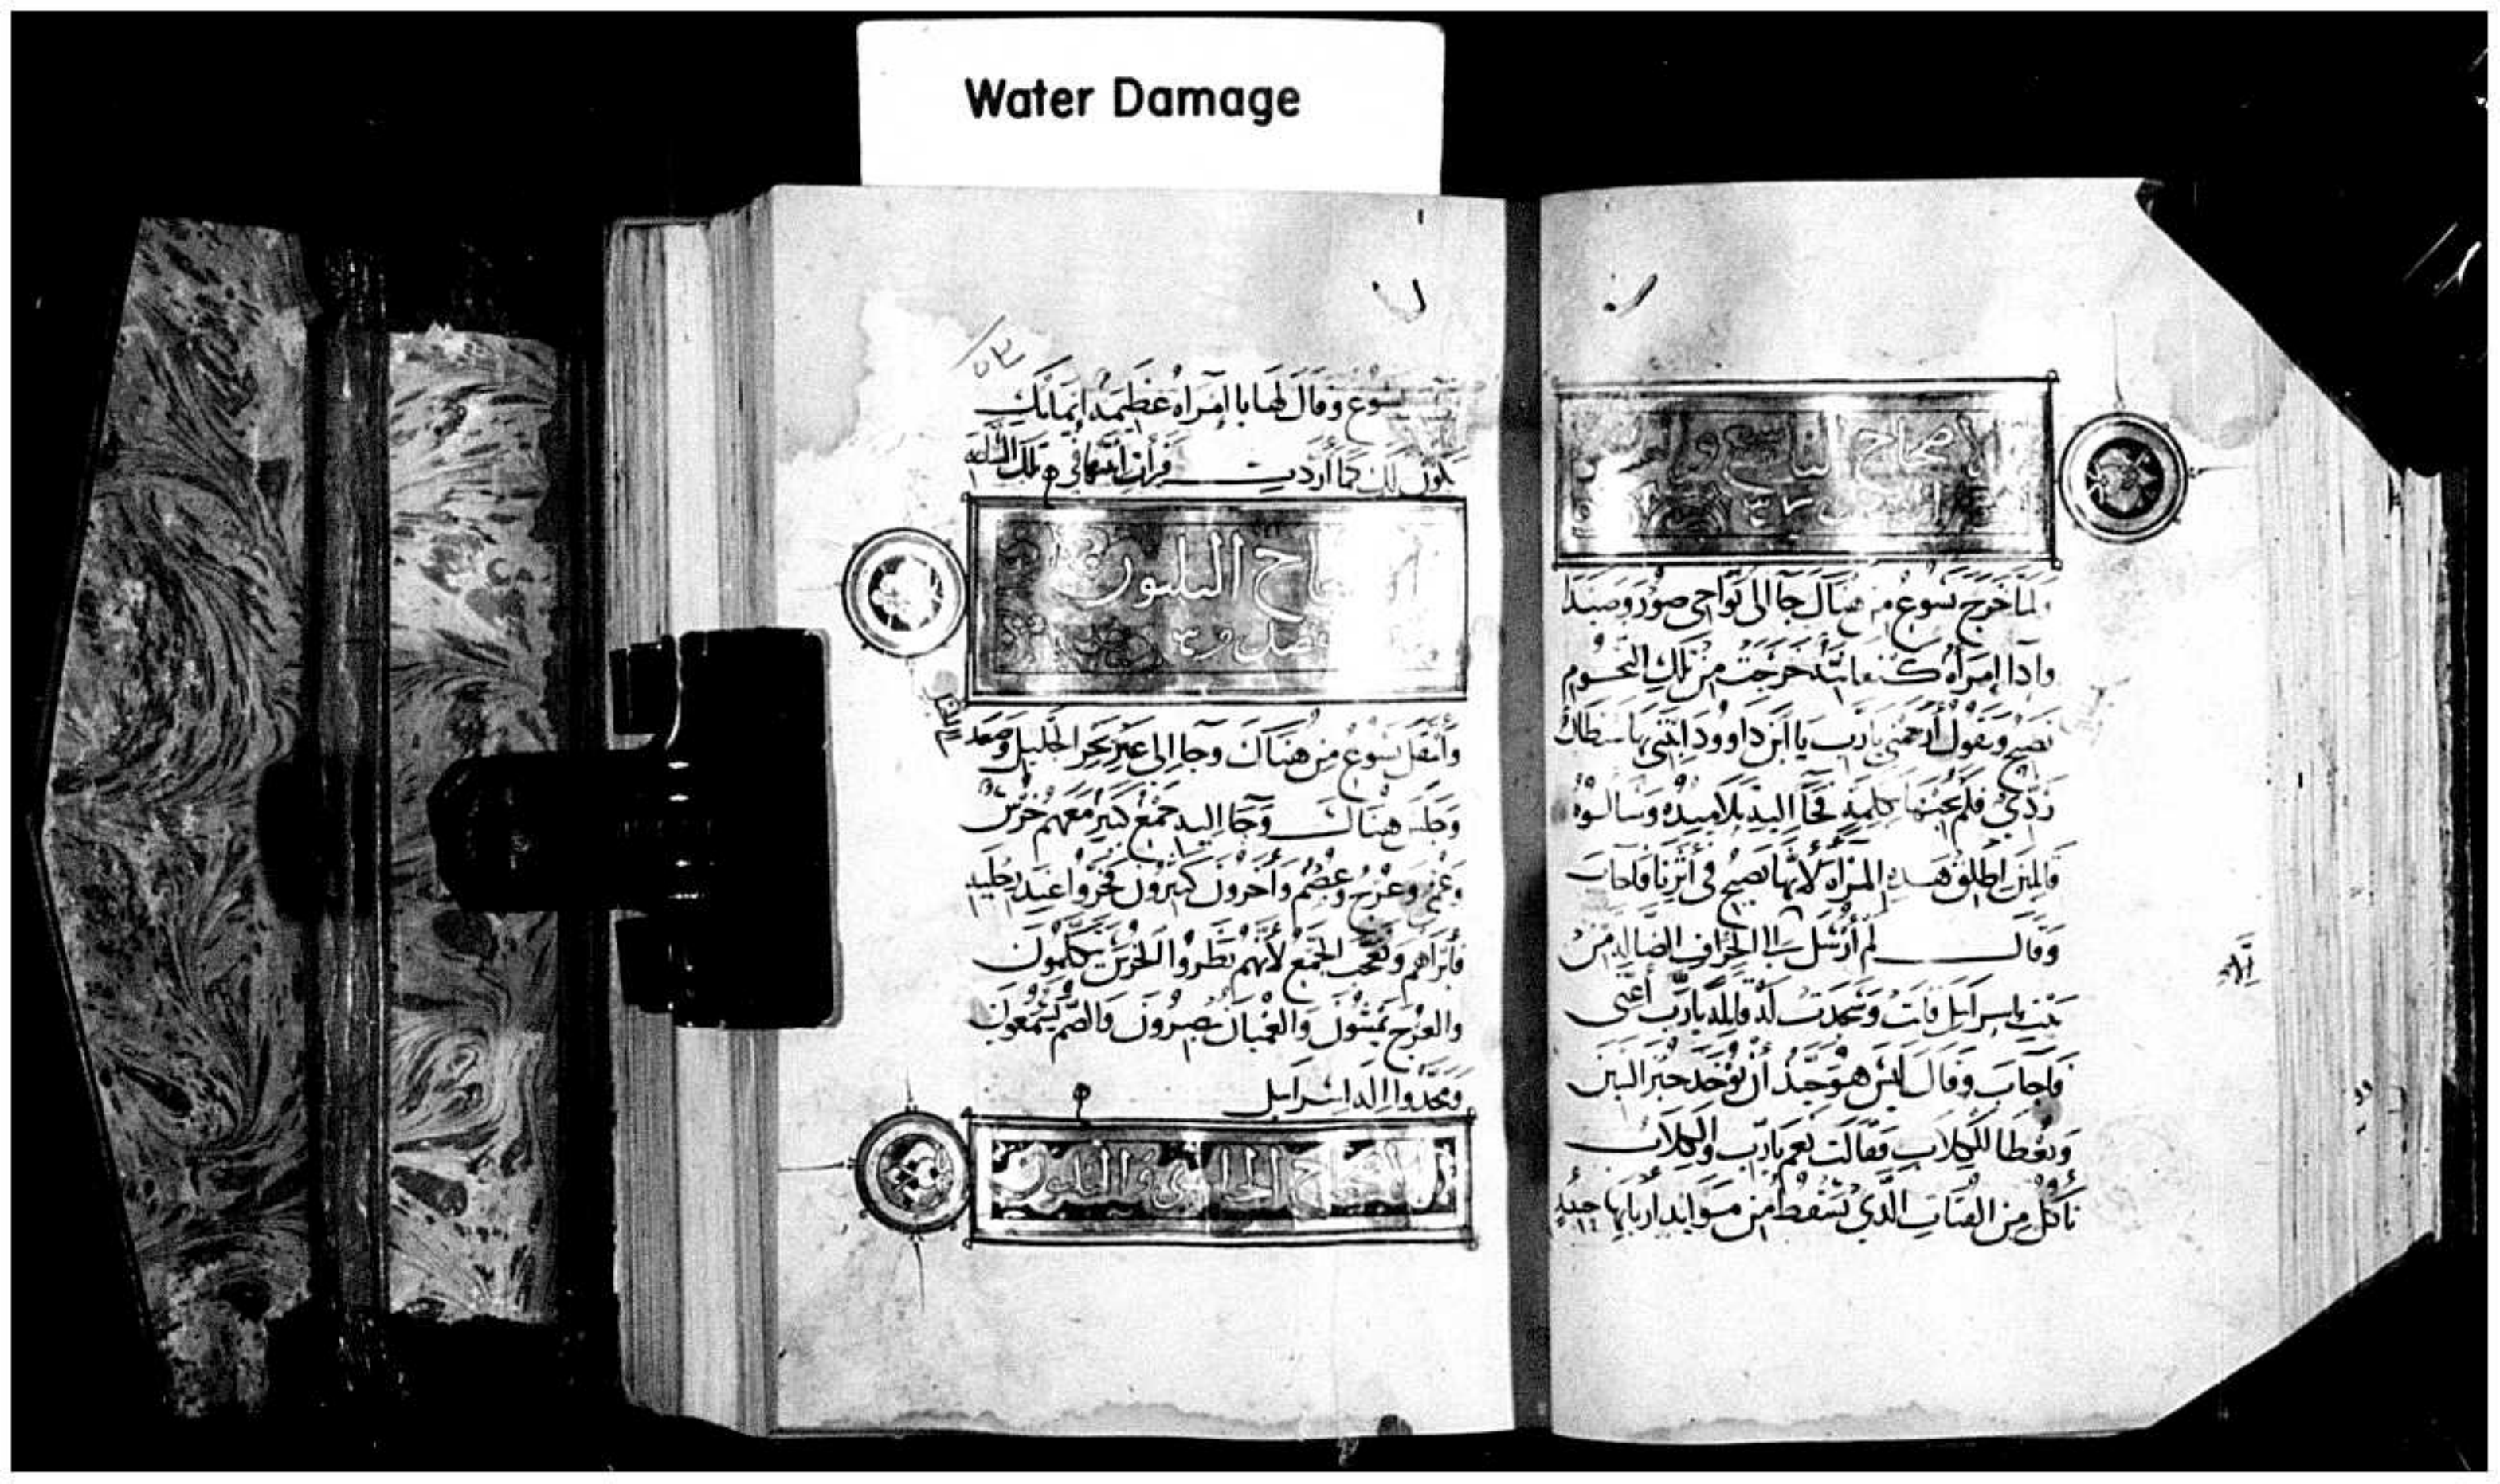 Water Damage
الاصحاح التاسع والعشرون
ولما خرج يسوع من هناك جا الى نواحي صور وصيدا
واذا إمرأه كنعانيّه خرجت من تلك التخوم
تصيح وتقول أرحمني يارب يا ابن داوود ابنتي بها شيطان
ردي فلم يجبها بكلمه فجآ اليه تلاميذه وسالوه
قايلين اطلق هذه المرأه لأنها تصيح في أثرنا فاجاب
وقال لم أرسل الا الى الخراف الضاله من
بيت إسرايل فاتت وسجدت له قايله يارب أعني
فاجاب وقال ليس هو جيد أن يوخد خبز البنين
ويعطا للكلاب فقالت نعم يارب والكلاب
تاكل من الفتات الذي يسقط من موايد أربابها حينيد
يسوع وقال لها يا إمرأه عظيمه إيمانك
يكون لك كما أردت فبرأت ابنتها في تلك الساعه
الاصحاح الثلثون
وأنتقل يسوع من هناك وجا إلى عبر بحر الجليل وصعد
وجلس هناك وجآ إليه جمع كبير معهم خرس
وعمي وعرج وعسم وأخرون كثيرون فخروا عند رجليه
فأبراهم وتعجب الجمع لأنهم نظروا الخرس يتكلمون
والعرج يمشون والعميان يبصرون والصم يسمعون
ومجدوا إله إسرايل
الاصحاح الحادي والثلثون